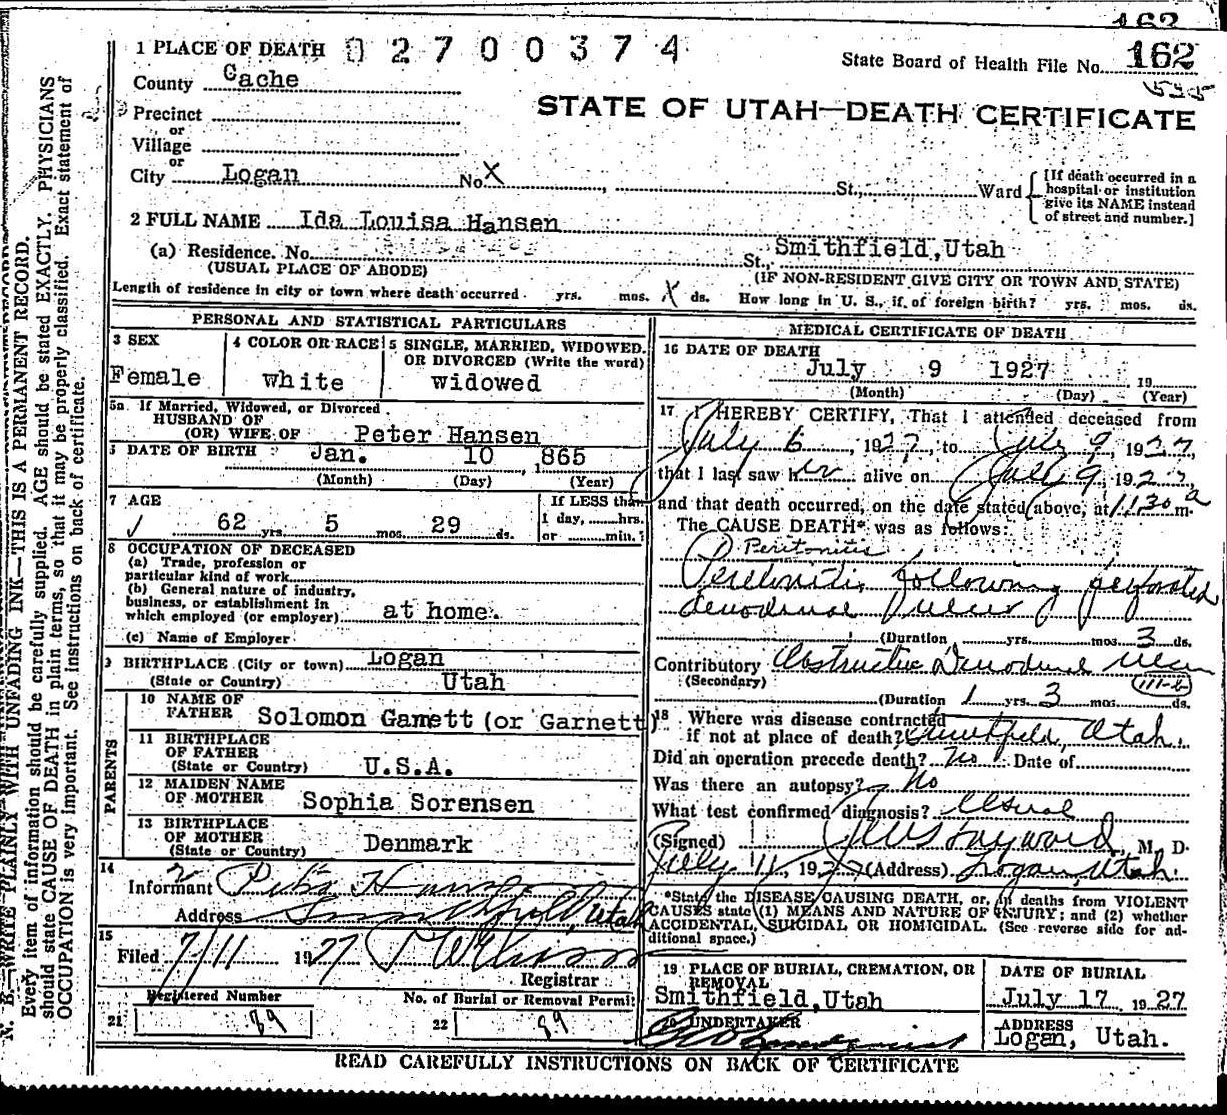 162
1 PLACE OF DEATH 02700374
State Board of Health File No. 162
County Cache
STATE OF UTAH—DEATH CERTIFICATE
Precinct
or
Village
or
City Logan No. X St., Ward
[If death occurred in a hospital or institution give its NAME instead of street and number.]
2 FULL NAME Ida Louisa Hansen
(a) Residence. No. St., Smithfield, Utah
(USUAL PLACE OF ABODE) (IF NON-RESIDENT GIVE CITY OR TOWN AND STATE)
Length of residence in city or town where death occurred yrs. mos. X ds. How long in U. S., if of foreign birth? yrs. mos. ds.
PERSONAL AND STATISTICAL PARTICULARS
3 SEX
Female
4 COLOR OR RACE
white
5 SINGLE, MARRIED, WIDOWED, OR DIVORCED (Write the word)
widowed
5a If Married, Widowed, or Divorced
HUSBAND OF
(OR) WIFE OF Peter Hansen
6 DATE OF BIRTH Jan. 10 1865
(Month) (Day) (Year)
7 AGE
62 yrs. 5 mos. 29 ds.
If LESS than
1 day, hrs.
or min.?
8 OCCUPATION OF DECEASED
(a) Trade, profession or
particular kind of work
(b) General nature of industry,
business, or establishment in
which employed (or employer) at home.
(c) Name of Employer
9 BIRTHPLACE (City or town) Logan
(State or Country) Utah
PARENTS
10 NAME OF
FATHER Solomon Garrett (or Garnett)
11 BIRTHPLACE
OF FATHER
(State or Country) U.S.A.
12 MAIDEN NAME
OF MOTHER Sophia Sorensen
13 BIRTHPLACE
OF MOTHER
(State or Country) Denmark
14
Informant
Address Smithfield Utah
15
Filed 7/11 1927
Registrar
Registered Number
21 89
No. of Burial or Removal Permit
22 89
MEDICAL CERTIFICATE OF DEATH
16 DATE OF DEATH
July 9 1927 19
(Month) (Day) (Year)
17 I HEREBY CERTIFY, That I attended deceased from
July 6, 1927, to July 9, 1927,
that I last saw her alive on July 9, 1927,
and that death occurred, on the date stated above, at 11:30 a m.
The CAUSE DEATH* was as follows:
Peritonitis
Peritonitis following perforated
duodenal ulcer
(Duration yrs. mos. 3 ds.
Contributory Obstructive Duodenal Ulcer
(Secondary) 111-b
(Duration 1 yrs. 3 mos. ds.
18 Where was disease contracted
if not at place of death? Smithfield, Utah.
Did an operation precede death? No Date of
Was there an autopsy? No
What test confirmed diagnosis? Usual
(Signed) Hayward, M. D.
July 11, 1927 (Address) Logan, Utah.
*State the DISEASE CAUSING DEATH, or, in deaths from VIOLENT
CAUSES state (1) MEANS AND NATURE OF INJURY; and (2) whether
ACCIDENTAL, SUICIDAL OR HOMICIDAL. (See reverse side for ad-
ditional space.)
19 PLACE OF BURIAL, CREMATION, OR
REMOVAL
Smithfield, Utah
DATE OF BURIAL
July 17 1927
20 UNDERTAKER
ADDRESS
Logan, Utah.
READ CAREFULLY INSTRUCTIONS ON BACK OF CERTIFICATE
N. B.—WRITE PLAINLY WITH UNFADING INK—THIS IS A PERMANENT RECORD.
Every item of information should be carefully supplied. AGE should be stated EXACTLY. PHYSICIANS
should state CAUSE OF DEATH in plain terms, so that it may be properly classified. Exact statement of
OCCUPATION is very important. See instructions on back of certificate.